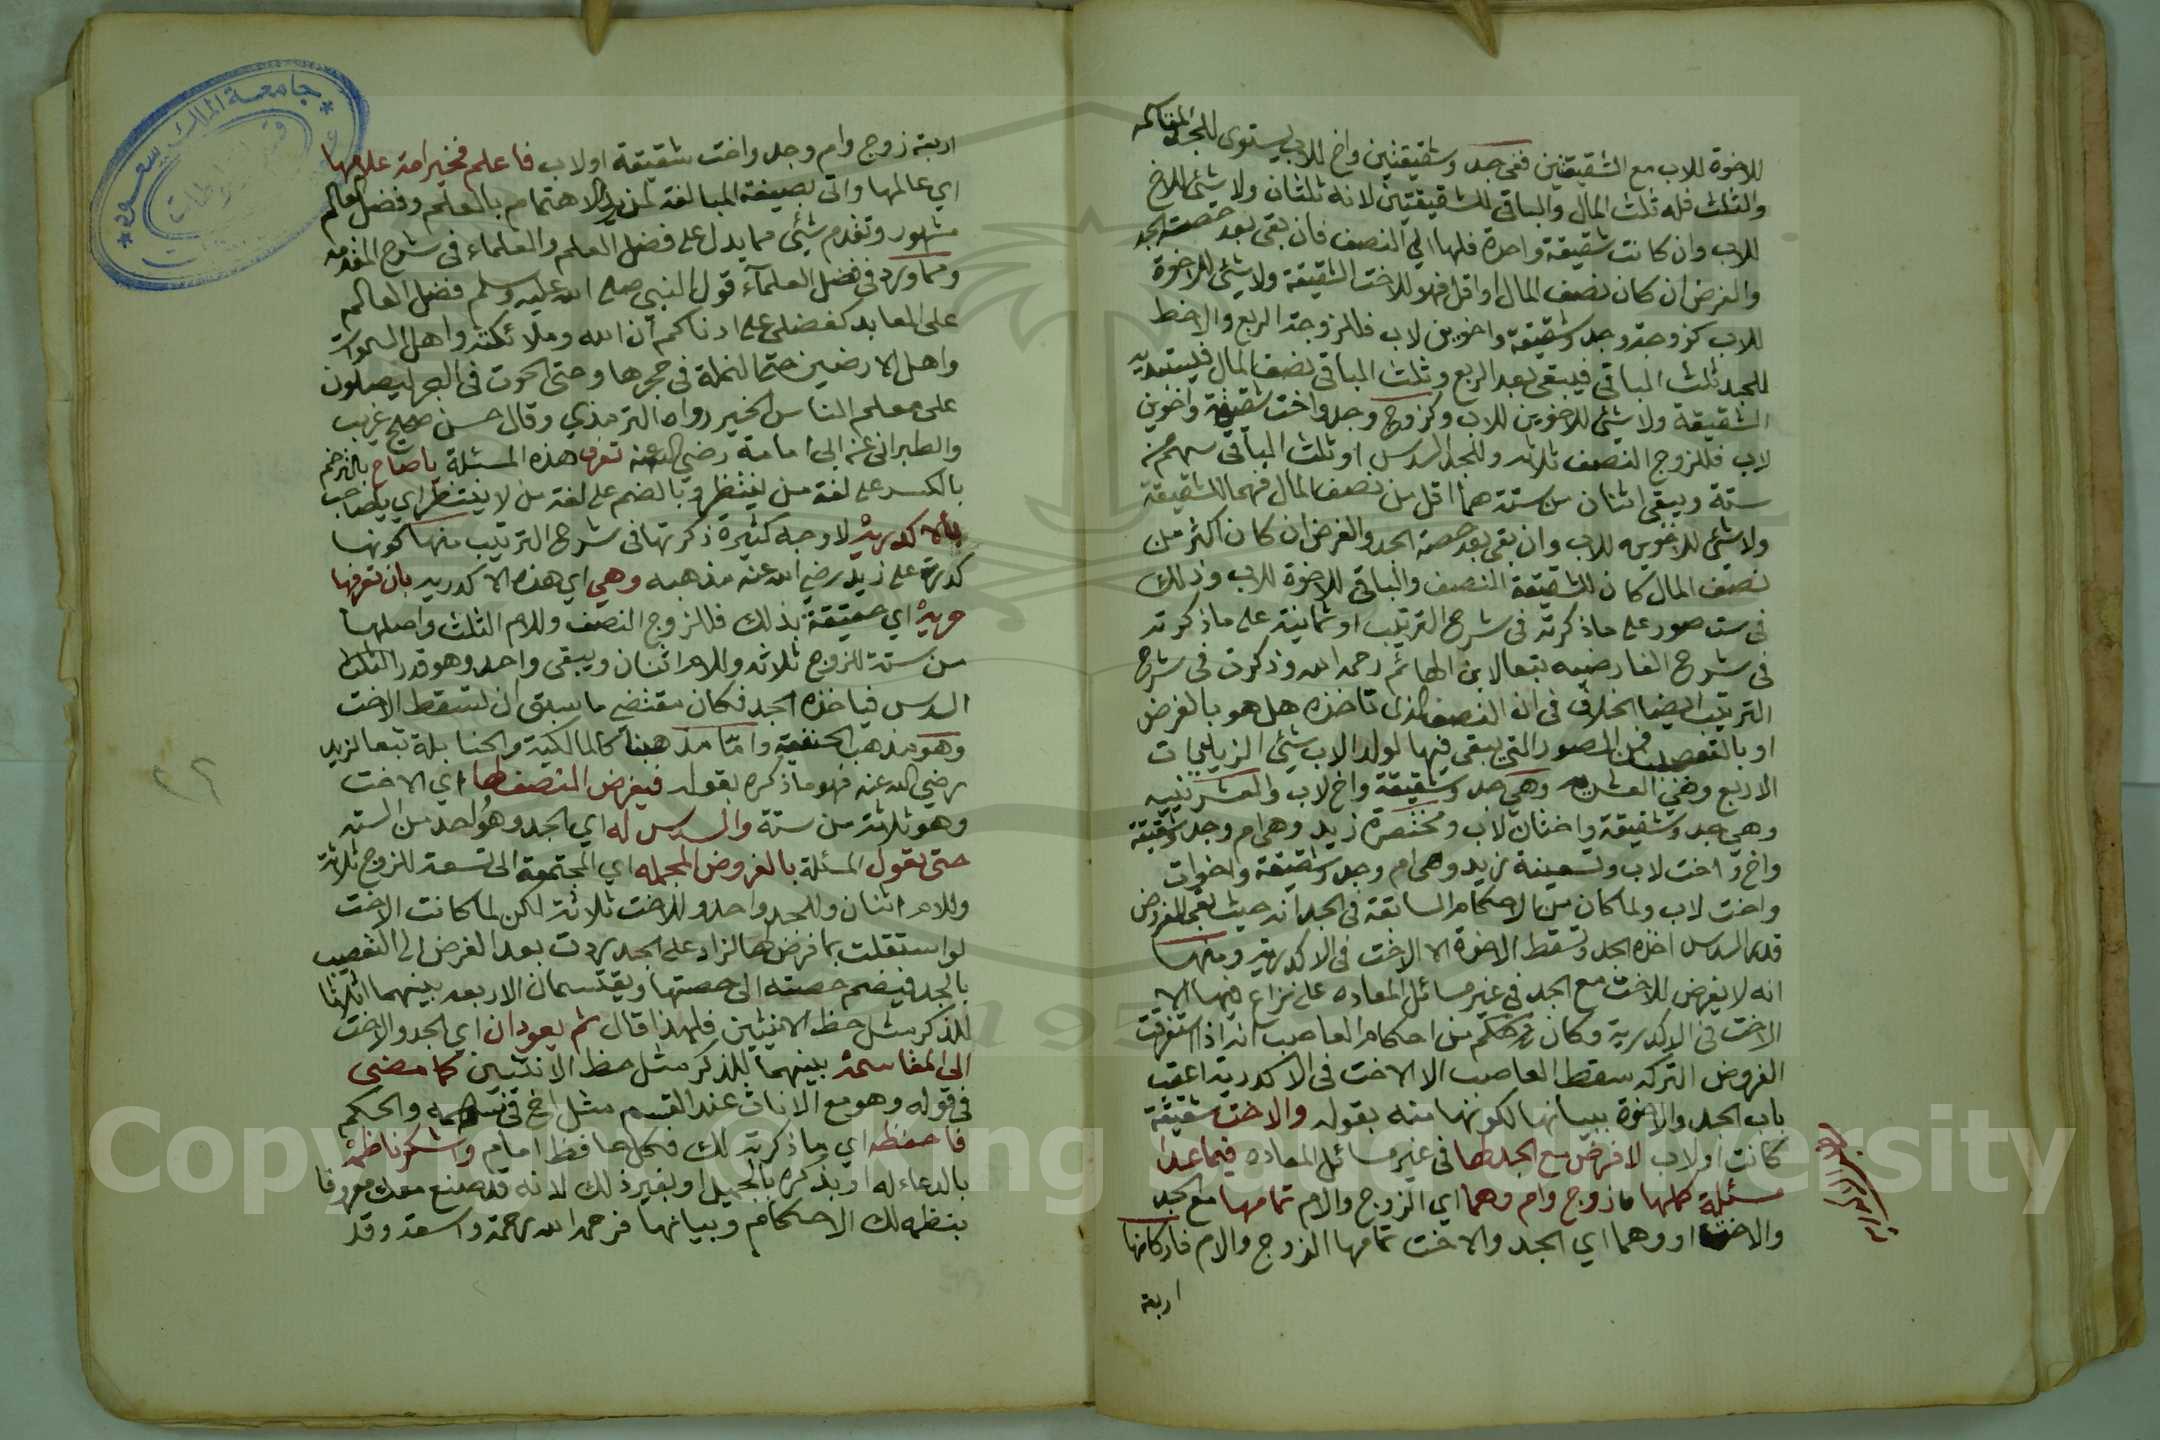 للاخوة للاب مع الشقيقتين ففي جد وشقيقتين واخ للاب يستوى للجد المقاسمة
والثلث فله ثلث المال والباقي للشقيقتين لانه ثلثان ولا شئ للاخ
للاب وان كانت شقيقة واحدة فلها الي النصف فان بقى بعد حصة الجد
والفرض ان كان نصف المال او اقل فهو للاخت الشقيقة ولا شئ للاخوة
للاب كزوجة وجد وشقيقة واخوين لاب فللزوجة الربع والاحظ
للجد ثلث الباقي فيبقى بعد الربع وثلث الباقى نصف المال فيستبد به
الشقيقة ولا شئ للاخوين للاب وكزوج وجد واخت شقيقة واخوين
لاب فللزوج النصف ثلاثه وللجد السدس او ثلث الباقي سهم من
ستة ويبقى اثنان من ستة هما اقل من نصف المال فهما للشقيقة
ولا شئ للاخوين للاب وان بقى بعد حصة الجد والفرض ان كان اكثر من
نصف المال كان للشقيقة النصف والباقى للاخوة للاب وذلك
فى ست صور على ما ذكرته فى شرح الترتيب او ثمانية على ما ذكرته
فى شرح الفارضيه تبعا لابن الهائم رحمه الله وذكرت فى شرح
الترتيب ايضا الخلاف فى ان النصف الذى تاخذه هل هو بالفرض
او بالتعصيب فمن الصور التى يبقى فيها لولد الاب شئ الزيديات
الاربع وهي العشرية وهي جد وشقيقة واخ لاب والعشرينيه
وهي جد وشقيقة واختان لاب ومختصرة زيد وهى ام وجد وشقيقة
واخ واخت لاب وتسعينة زيد وهى ام وجد وشقيقة واخوان
واخت لاب ولما كان من الاحكام السابقة فى الجد انه حيث بقى الفروض
قدر السدس اخذه الجد وتسقط الاخوة الا الاخت فى الاكدرية ومنها
انه لا يفرض للاخت مع الجد فى غير مسائل المعاده على نزاع فيها الا
الاخت فى الاكدرية وكان من احكام العاصب انه اذا استغرقت
الفروض التركه سقط العاصب الا الاخت فى الاكدرية اعقب
باب الجد والاخوة ببيانها لكونها منه بقوله والاخت شقيقة
كانت او لاب لا فرض مع الجد لها فى غير مسائل المعاده فيما عدا
مسئلة كملها زوج وام وهما اي الزوج والام تمامها مع الجد
والاخت او وهما اي الجد والاخت تمامها الزوج والام فاركانها
اربعة
اربعة زوج وام وجد واخت شقيقة او لاب فاعلم فخير امة علامها
اي عالمها واتى بصيغة المبالغة لمزيد الاهتمام بالعلم وفضل العالم
مشهور وتقدم شئ مما يدل على فضل العلم والعلماء فى شرح المقدمه
ومما ورد فى فضل العلماء قول النبي صلى الله عليه وسلم فضل العالم
على العابد كفضلى على ادناكم ان الله وملائكته واهل السموات
واهل الارضين حتى النملة فى جحرها وحتى الحوت فى البحر ليصلون
على معلم الناس الخير رواه الترمذي وقال حسن صحيح غريب
والطبرانى عن ابى امامة رضي الله عنه تعرف هذه المسئلة يا صاح بالترخيم
بالكسر على لغة من ينتظر وبالضم على لغة من لا ينتظر اي يا صاحب
بالاكدرية لاوجه كثيرة ذكرتها فى شرح الترتيب منها كونها
كدرت على زيد رضي الله عنه مذهبه وهي اي هذه الاكدريه بان تعرفها
حرية اي حقيقة بذلك فللزوج النصف وللام الثلث واصلها
من ستة للزوج ثلاثه وللام اثنان ويبقى واحد وهو قدر
السدس فياخذه الجد فكان مقتضى ما سبق ان تسقط الاخت
وهو مذهب الحنفية واما مذهبنا كالمالكية والحنابلة تبعا لزيد
رضي الله عنه فهو ما ذكره بقوله فيفرض النصف لها اي الاخت
وهو ثلاثة من ستة والسدس له اي الجد وهو واحد من الستة
حتى تعول المسئلة بالفروض المجمله اي المجتمعة الى تسعة للزوج ثلاثة
وللام اثنان وللجد واحد وللاخت ثلاثة لكن لما كانت الاخت
لو استقلت بما فرض لها لزاد على الجد ردت بعد الفرض الى التعصيب
بالجد فيضم حصته الى حصتها ويقتسمان الاربعه بينهما اثلاثا
للذكر مثل حظ الانثيين فلهذا قال ثم يعودان اي الجد والاخت
الى المقاسمة بينهما للذكر مثل حظ الانثيين كما مضى
فى قوله وهو مع الاناث عند القسم مثل اخ فى سهمه والحكم
فاحفظه اي ما ذكرته لك فكل حافظ امام واشكر ناظمه
بالدعاء له او بذكره بالجميل او بغير ذلك لانه قد صنع معك معروفا
بنظمه لك الاحكام وبيانها فرحمه الله رحمة واسعة وقد
جامعة الملك سعود
Copyright © King Saud University
1957